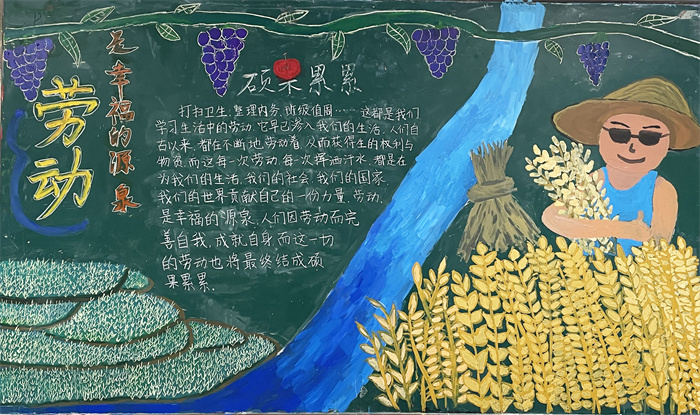 劳动
是幸福的源泉
硕果累累
打扫卫生、整理内务、班级值周……这都是我们
学习生活中的劳动,它早已渗入我们的生活。人们自
古以来,都在不断地劳动着,从而获得生的权利与
物资,而这每一次劳动,每一次挥洒汗水,都是在
为我们的生活,我们的社会,我们的国家,
我们的世界贡献自己的一份力量。劳动,
是幸福的源泉,人们因劳动而完
善自我,成就自身,而这一切
的劳动也将最终结成硕
果累累。